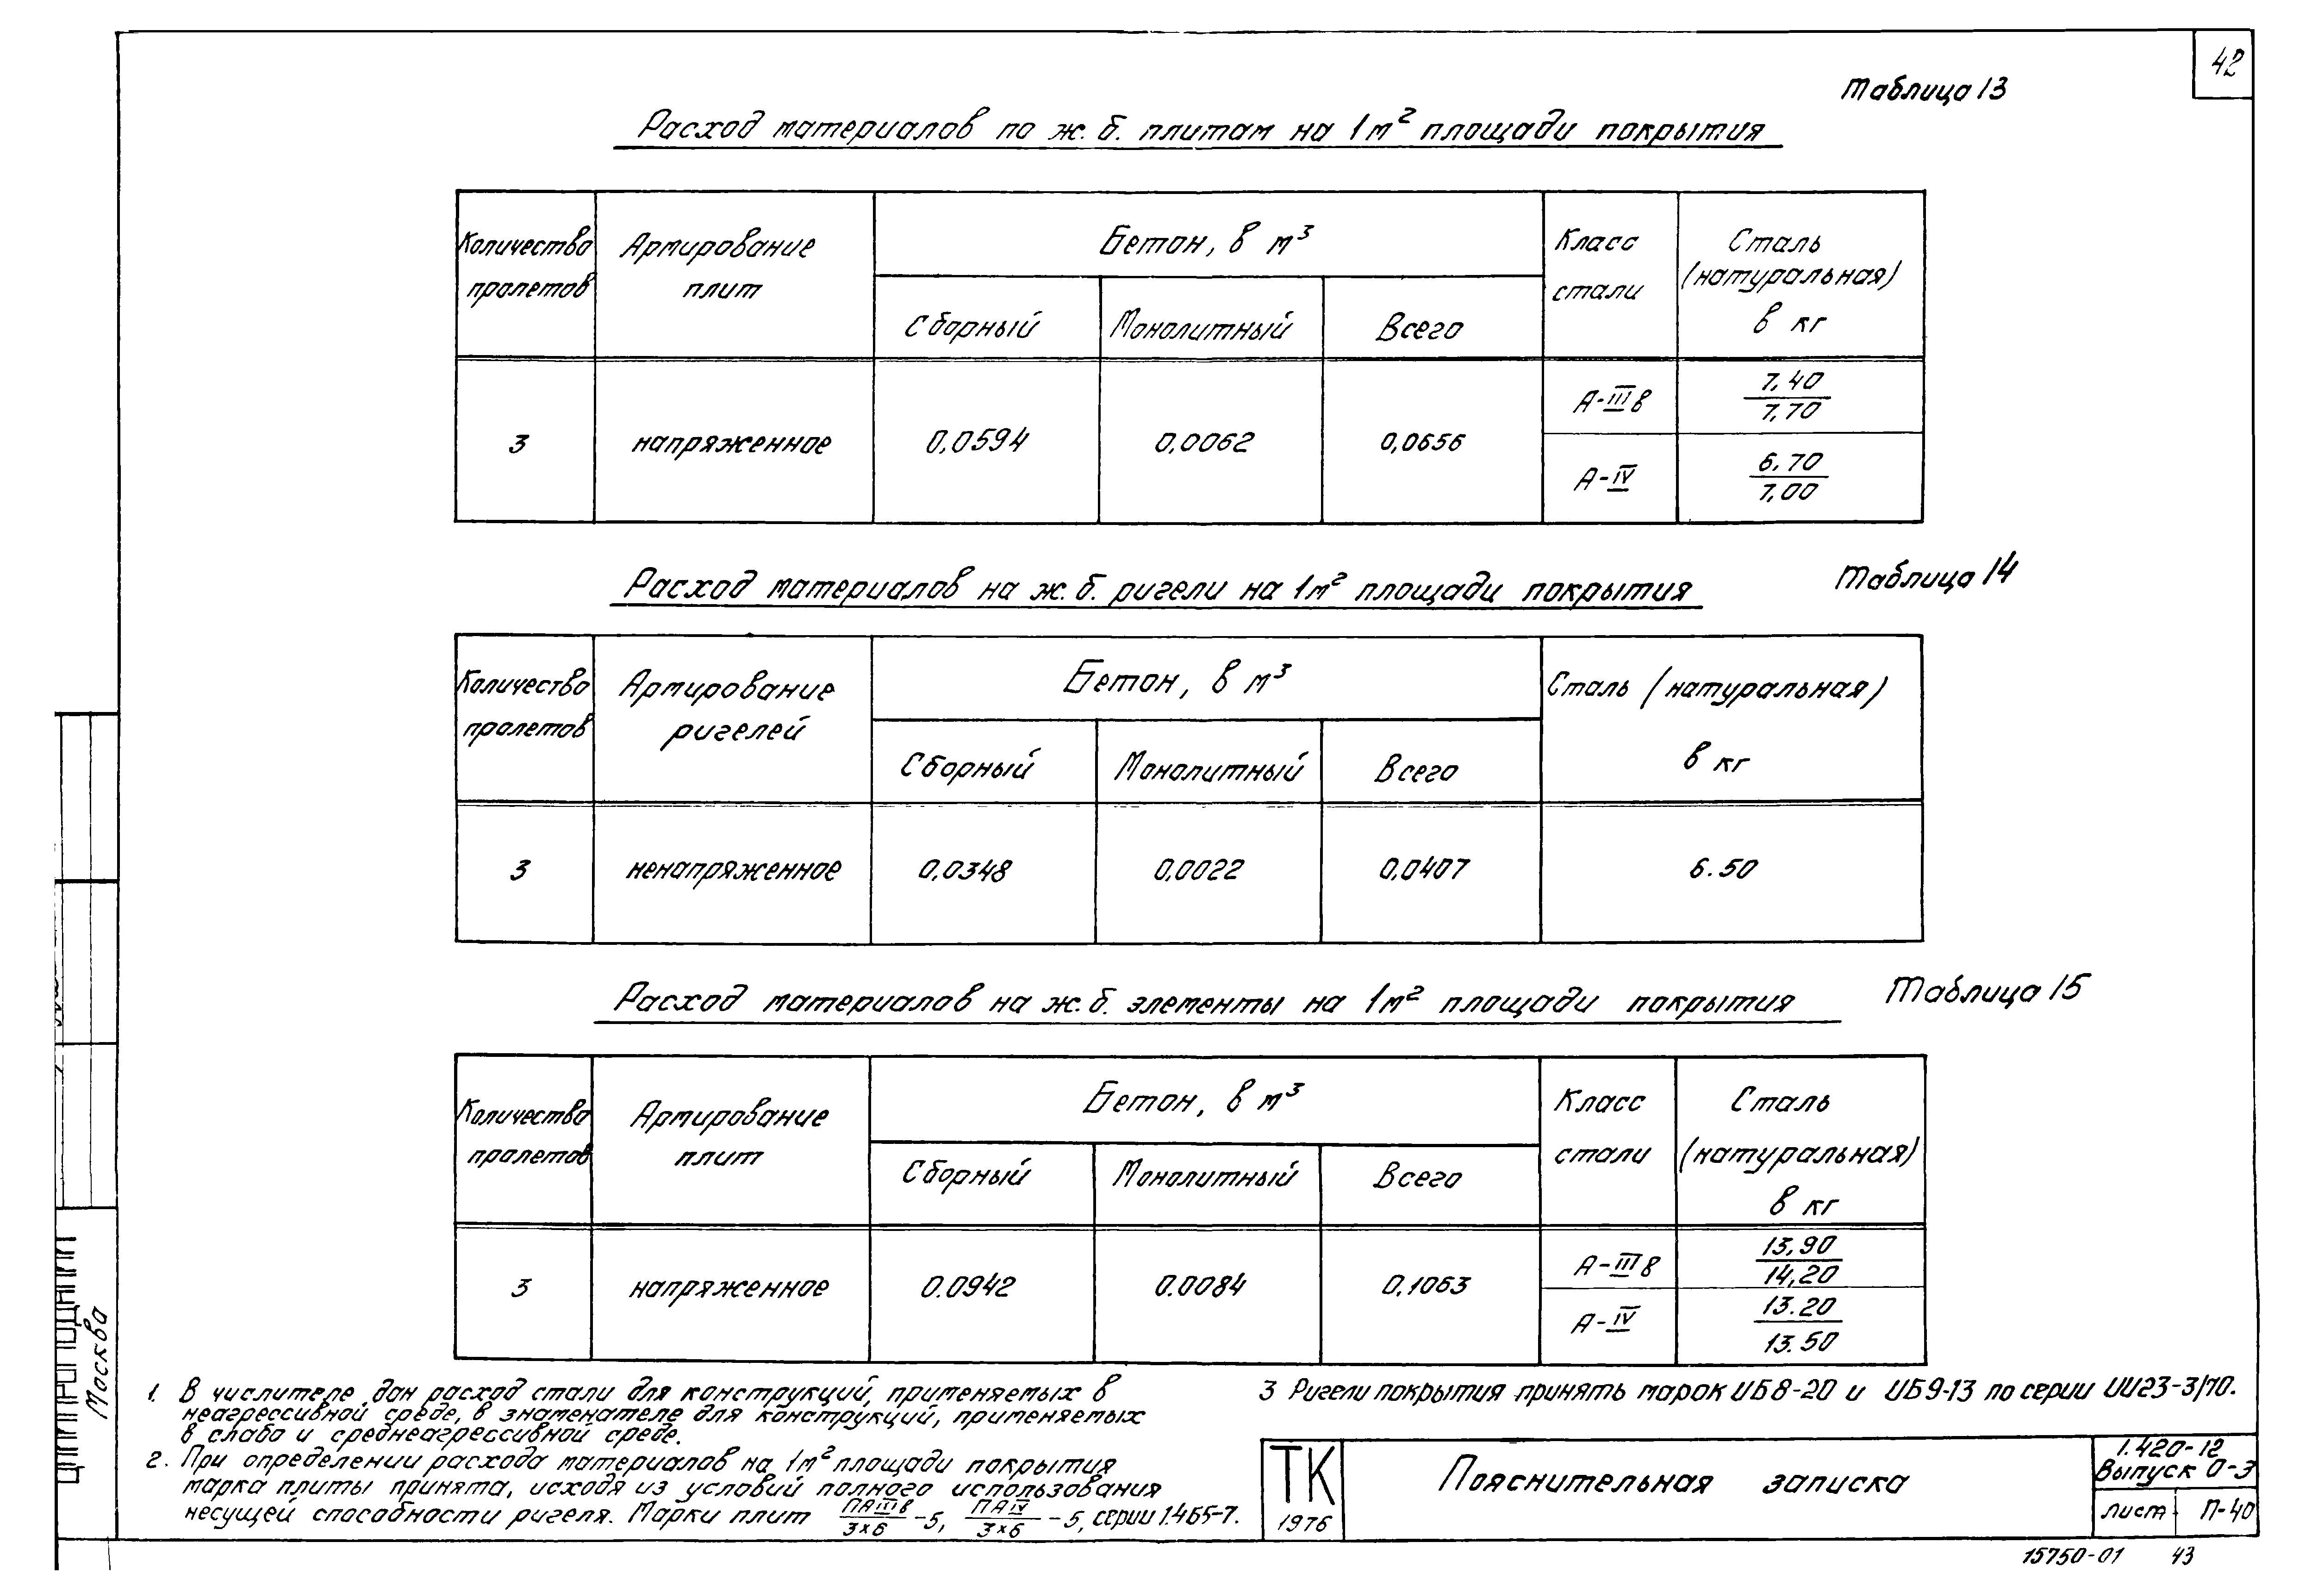 42
Таблица 13
Расход материалов по ж.б. плитам на 1м² площади покрытия
Количество пролетов
Армирование плит
Бетон, в м³
Сборный
Монолитный
Всего
Класс стали
Сталь (натуральная) в кг
3
напряженное
0,0594
0,0062
0,0656
А-IIIв
7,40
7,70
А-IV
6,70
7,00
Расход материалов на ж.б. ригели на 1м² площади покрытия
Таблица 14
Количество пролетов
Армирование ригелей
Бетон, в м³
Сборный
Монолитный
Всего
Сталь (натуральная)
в кг
3
ненапряженное
0,0348
0,0022
0,0407
6.50
Расход материалов на ж.б. элементы на 1м² площади покрытия
Таблица 15
Количество пролетов
Армирование плит
Бетон, в м³
Сборный
Монолитный
Всего
Класс стали
Сталь (натуральная) в кг
3
напряженное
0.0942
0.0084
0,1063
А-IIIв
13,90
14,20
А-IV
13.20
13.50
1. В числителе дан расход стали для конструкций, применяемых в
неагрессивной среде, в знаменателе для конструкций, применяемых
в слабо и среднеагрессивной среде.
2. При определении расхода материалов на 1м² площади покрытия
марка плиты принята, исходя из условий полного использования
несущей способности ригеля. Марки плит ПАIIIв/3×6 -5, ПАIV/3×6 -5, серии 1.465-7.
3 Ригели покрытия принять марок ИБ8-20 и ИБ9-13 по серии ИИ23-3/70.
ТК
1976
Пояснительная записка
1.420-12
Выпуск 0-3
лист
П-40
15750-01 43
Москва